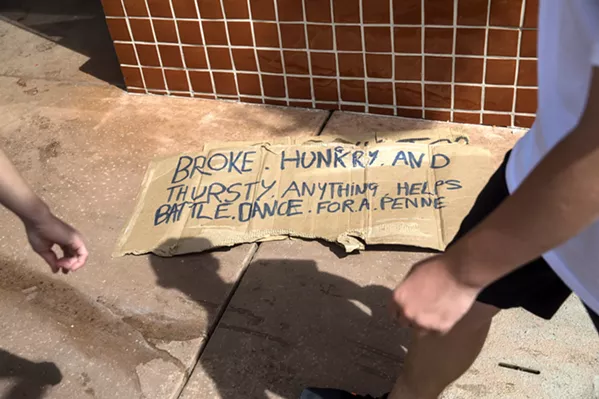 BROKE. HUNKRY. AND
THURSTY. ANYTHING. HELPS
BATTLE. DANCE. FOR. A. PENNE